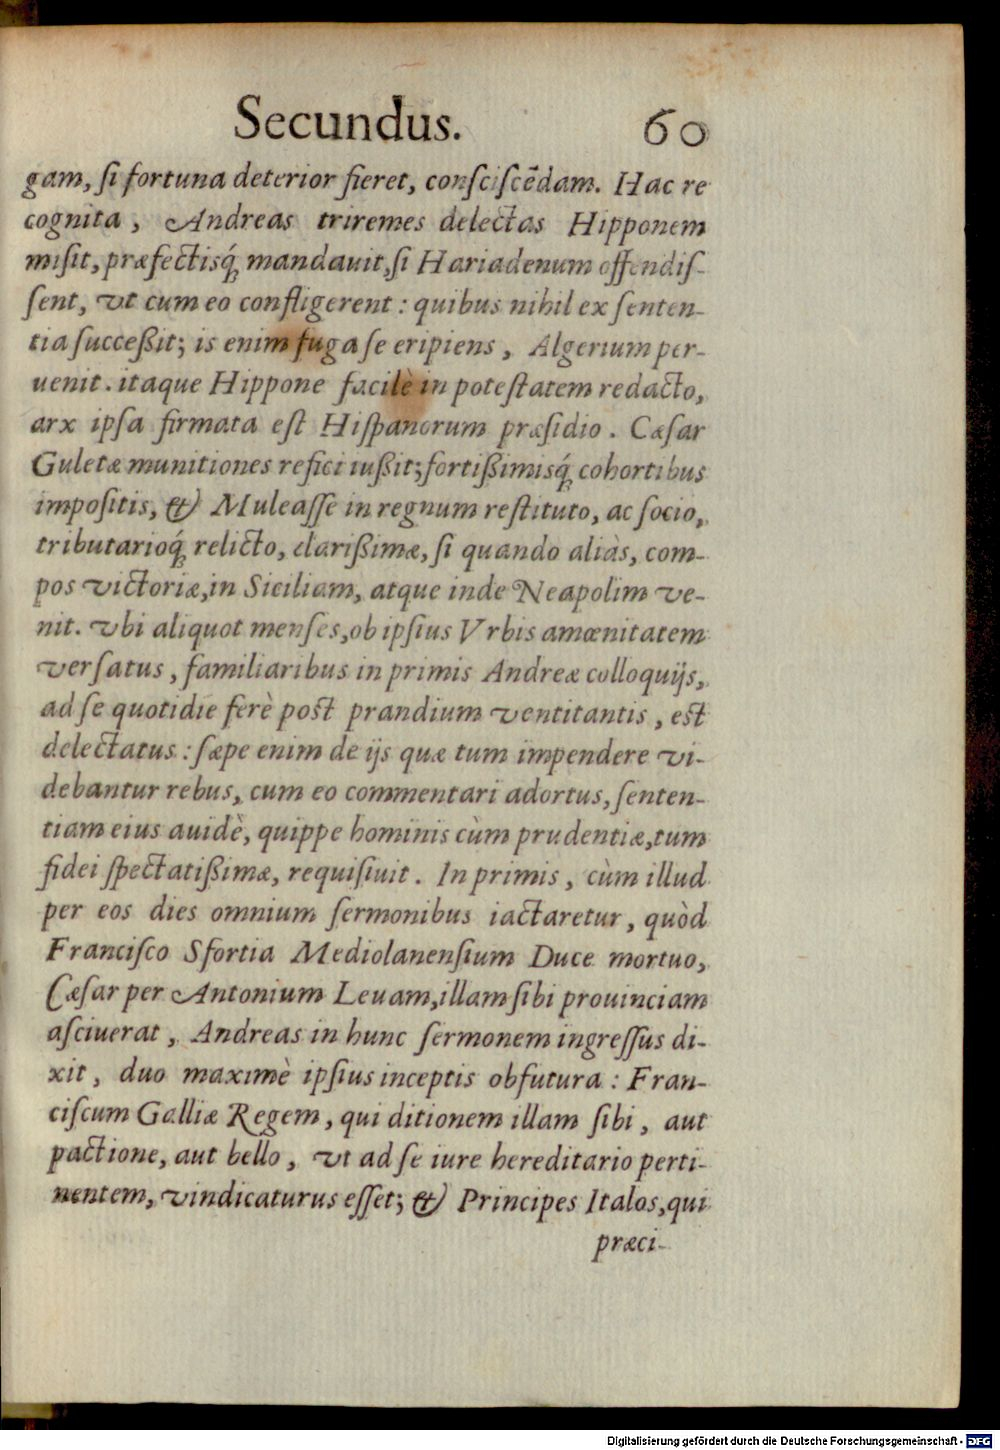 Secundus. 60
gam, ſi fortuna deterior fieret, conſciſcēdam. Hac re
cognita, Andreas triremes delectas Hipponem
miſit, præfectisq́; mandauit, ſi Hariadenum offendiſ-
ſent, vt cum eo confligerent: quibus nihil ex ſenten-
tia ſucceßit; is enim fuga ſe eripiens, Algerium per-
uenit. itaque Hippone facilè in poteſtatem redacto,
arx ipſa firmata eſt Hiſpanorum præſidio. Cæſar
Guletæ munitiones refici iußit; fortißimisq́; cohortibus
impoſitis, & Muleaſſe in regnum reſtituto, ac ſocio,
tributarioq́; relicto, clarißimæ, ſi quando aliàs, com-
pos victoriæ, in Siciliam, atque inde Neapolim ve-
nit. vbi aliquot menſes, ob ipſius Vrbis amœnitatem
verſatus, familiaribus in primis Andreæ colloquijs,
ad ſe quotidie ferè poſt prandium ventitantis, eſt
delectatus: ſæpe enim de ijs quæ tum impendere vi-
debantur rebus, cum eo commentari adortus, ſenten-
tiam eius auidè, quippe hominis cùm prudentiæ, tum
fidei ſpectatißimæ, requiſiuit. In primis, cùm illud
per eos dies omnium ſermonibus iactaretur, quòd
Franciſco Sfortia Mediolanenſium Duce mortuo,
Cæſar per Antonium Leuam, illam ſibi prouinciam
aſciuerat, Andreas in hunc ſermonem ingreſſus di-
xit, duo maximè ipſius inceptis obfutura: Fran-
ciſcum Galliæ Regem, qui ditionem illam ſibi, aut
pactione, aut bello, vt ad ſe iure hereditario perti-
nentem, vindicaturus eſſet; & Principes Italos, qui
præci-
Digitalisierung gefördert durch die Deutsche Forschungsgemeinschaft - DFG